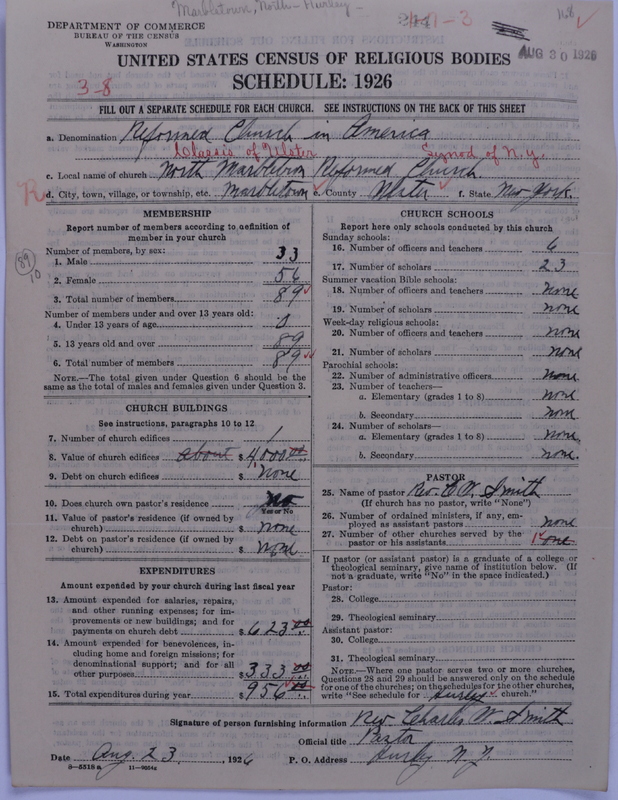 Marbletown, North - Hurley -
241-3
DEPARTMENT OF COMMERCE
BUREAU OF THE CENSUS
WASHINGTON
AUG 30 1926
UNITED STATES CENSUS OF RELIGIOUS BODIES
SCHEDULE: 1926
3-8
FILL OUT A SEPARATE SCHEDULE FOR EACH CHURCH. SEE INSTRUCTIONS ON THE BACK OF THIS SHEET
a. Denomination Reformed Church in America
Classis of Ulster Synod of N.Y.
c. Local name of church North Marbletown Reformed Church
R d. City, town, village, or township, etc. Marbletown e. County Ulster f. State New York.
MEMBERSHIP
Report number of members according to definition of
member in your church
Number of members, by sex:
1. Male 33
2. Female 56
3. Total number of members 89
89
10
Number of members under and over 13 years old:
4. Under 13 years of age 0
5. 13 years old and over 89
6. Total number of members 89
NOTE.—The total given under Question 6 should be the
same as the total of males and females given under Question 3.
CHURCH BUILDINGS
See instructions, paragraphs 10 to 12
7. Number of church edifices 1
8. Value of church edifices about $ 4,000 00
9. Debt on church edifices $ None
10. Does church own pastor's residence No
Yes or No
11. Value of pastor's residence (if owned by
church) $ none
12. Debt on pastor's residence (if owned by
church) $ none
EXPENDITURES
Amount expended by your church during last fiscal year
13. Amount expended for salaries, repairs,
and other running expenses; for im-
provements or new buildings; and for
payments on church debt $ 623 00
14. Amount expended for benevolences, in-
cluding home and foreign missions; for
denominational support; and for all
other purposes $ 333 00
15. Total expenditures during year $ 956 00
CHURCH SCHOOLS
Report here only schools conducted by this church
Sunday schools:
16. Number of officers and teachers 6
17. Number of scholars 23
Summer vacation Bible schools:
18. Number of officers and teachers none
19. Number of scholars none
Week-day religious schools:
20. Number of officers and teachers none
21. Number of scholars none
Parochial schools:
22. Number of administrative officers none
23. Number of teachers—
a. Elementary (grades 1 to 8) none
b. Secondary none
24. Number of scholars—
a. Elementary (grades 1 to 8) none
b. Secondary none.
PASTOR
25. Name of pastor Rev. C. W. Smith
(If church has no pastor, write "None")
26. Number of ordained ministers, if any, em-
ployed as assistant pastors none
27. Number of other churches served by the
pastor or his assistants 1 one
If pastor (or assistant pastor) is a graduate of a college or
theological seminary, give name of institution below. (If
not a graduate, write "No" in the space indicated.)
Pastor:
28. College
29. Theological seminary
Assistant pastor:
30. College
31. Theological seminary
NOTE.—Where one pastor serves two or more churches,
Questions 28 and 29 should be answered only on the schedule
for one of the churches; on the schedules for the other churches,
write "See schedule for Hurley church."
Signature of person furnishing information Rev. Charles W. Smith
Official title Pastor
Date Aug. 23, 1926 P. O. Address Hurley N.Y.
8—5518 a 11—9864a